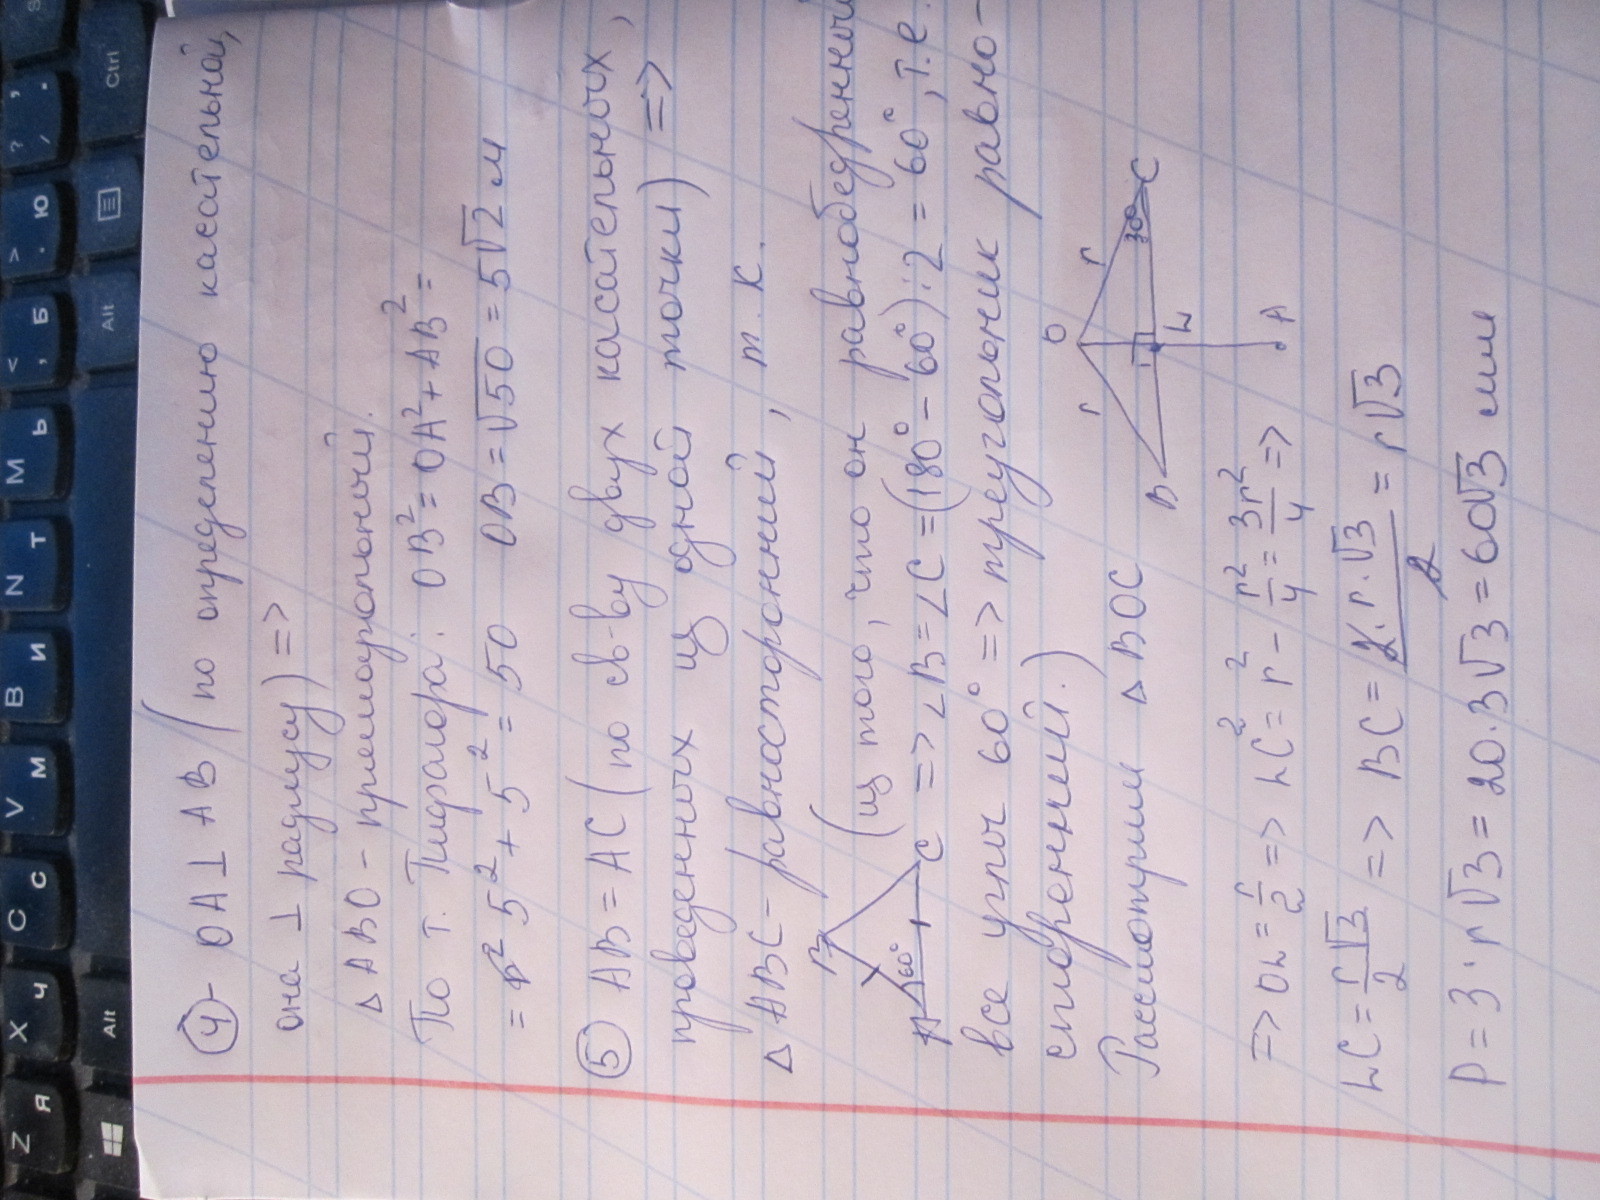 ④ - OA ⊥ AB (по определению касательной,
она ⊥ радиусу) =>
△ ABO - прямоугольный.
По т. Пифагора: OB² = OA² + AB² =
= 5² + 5² = 50 OB = √50 = 5√2 м
⑤ AB = AC (по св-ву двух касательных,
проведенных из одной точки) =>
△ ABC - равносторонний, т.к.
(из того, что он равнобедренный
B
A 60° C => ∠B = ∠C = (180° - 60°):2 = 60°, т.е.
все углы 60° => треугольник равно-
сторонний.)
Рассмотрим △ BOC
O
r r
B 30° C
L
A
=> OL = r/2 => LC² = r² - r²/4 = 3r²/4 =>
LC = r√3/2 => BC = 2·r·√3/2 = r√3
P = 3·r√3 = 20·3√3 = 60√3 мм
Z Я
X Ч
C С
V М
B И
N Т
M Ь
< , Б
> . Ю
? / , .
Alt
Alt
Ctrl